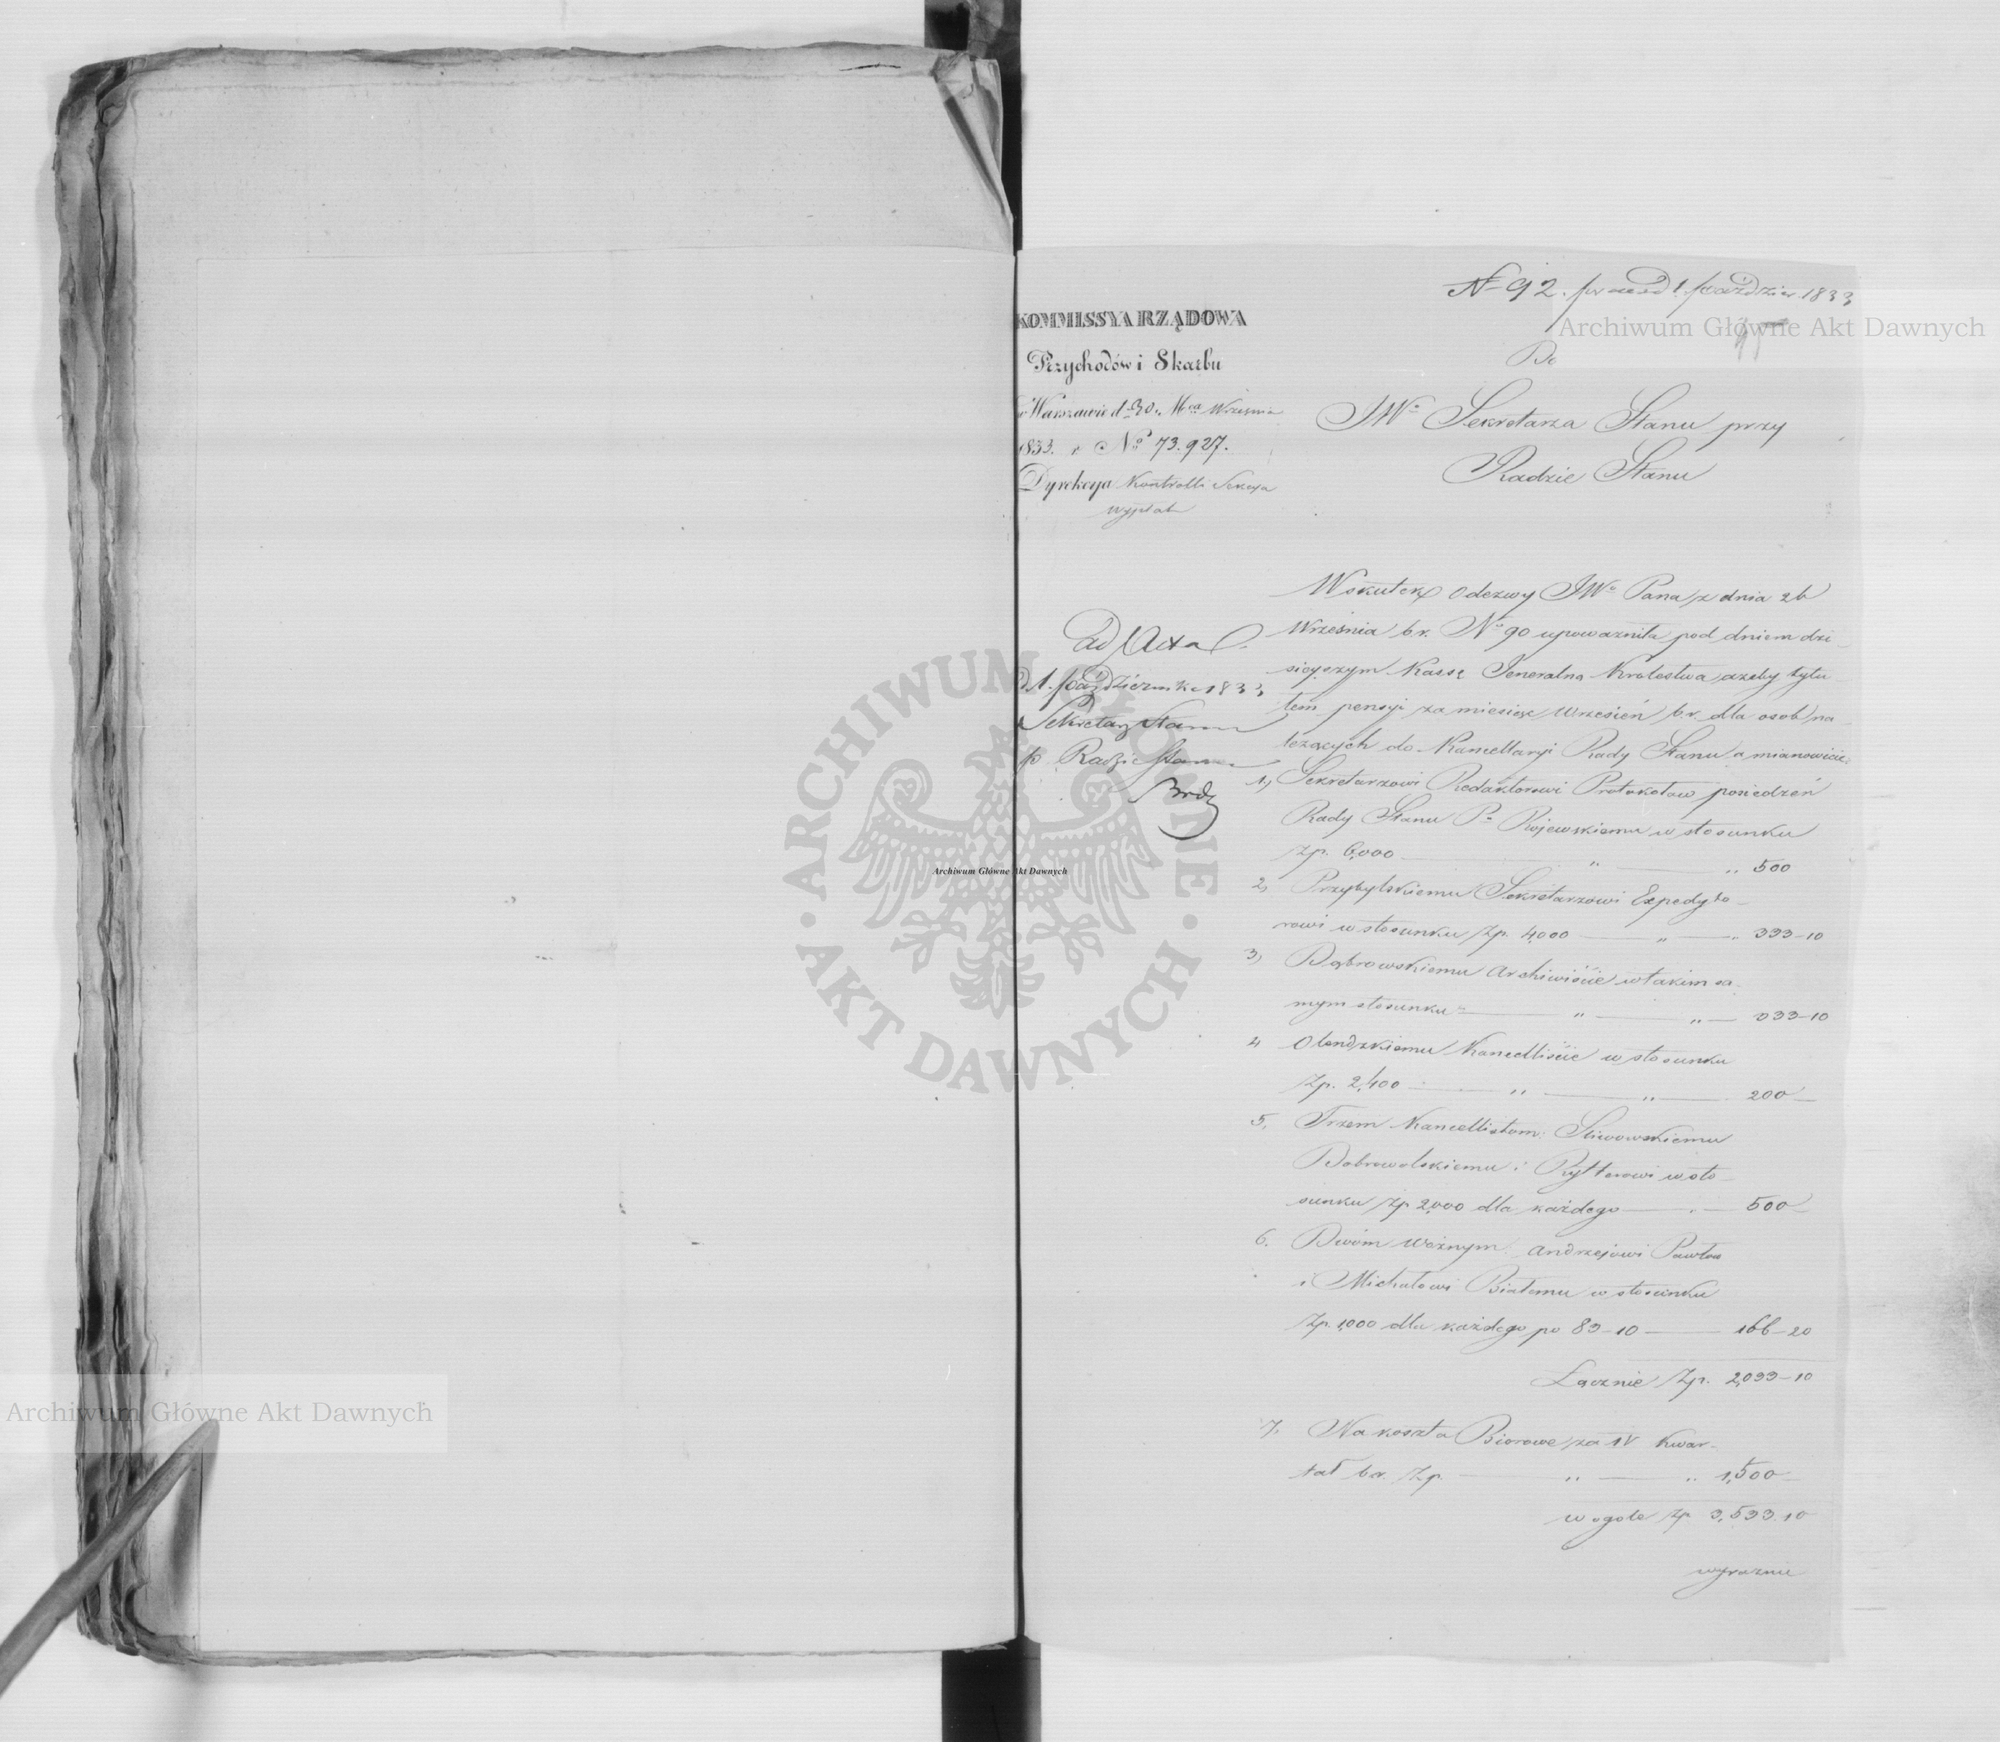 N 92. praes d 1. paździer. 1833
KOMMISSYA RZĄDOWA
Przychodów i Skarbu
w Warszawie d. 30. Mca Września
1833. r No 73.927.
Dyrekcya Kontrolli Sekcya
wypłat
Do
JWo Sekretarza Stanu przy
Radzie Stanu
Wskutek odezwy JWo Pana z dnia 26
Września b.r. No 90 upoważniła pod dniem dzi-
sieyszym Kassę Jeneralną Królestwa, ażeby tytu-
łem pensyi za miesiąc Wrzesień b.r. dla osób na-
leżących do Kancellaryi Rady Stanu a mianowicie:
ad Acta
d 1. Października 1833
Sekretarz Stanu
p. Radzie Stanu
1, Sekretarzowi Redaktorowi Protokołów posiedzeń
Rady Stanu Po Rojewskiemu w stosunku
Zp. 6,000 — „ — „ 500
2, Przybylskiemu Sekretarzowi Expedyto-
rowi w stosunku Zp. 4,000 — „ — „ 333-10
3, Dąbrowskiemu Archiwiście w takim sa-
mym stosunku — „ — „ — 333-10
4 Olendzkiemu Kancelliście w stosunku
Zp. 2,400 — „ — „ — 200 —
5, Trzem Kancellistom: Śliwowskiemu
Dobrowolskiemu i Rytterowi w sto-
sunku Zp 2,000 dla każdego — „ — 500 —
6. Dwóm Woźnym Andrzejowi Pawłow
i Michałowi Białemu w stosunku
Zp. 1,000 dla każdego po 83-10 — 166-20
Łącznie Zp. 2,033-10
7, Na koszta Biorowe za IV Kwar-
tał b.r. Zp. — „ — „ 1,500 —
w ogóle Zp 3,533.10
wyraźnie
Archiwum Główne Akt Dawnych
Archiwum Główne Akt Dawnych
Archiwum Główne Akt Dawnych
ARCHIWUM GŁÓWNE · AKT DAWNYCH ·